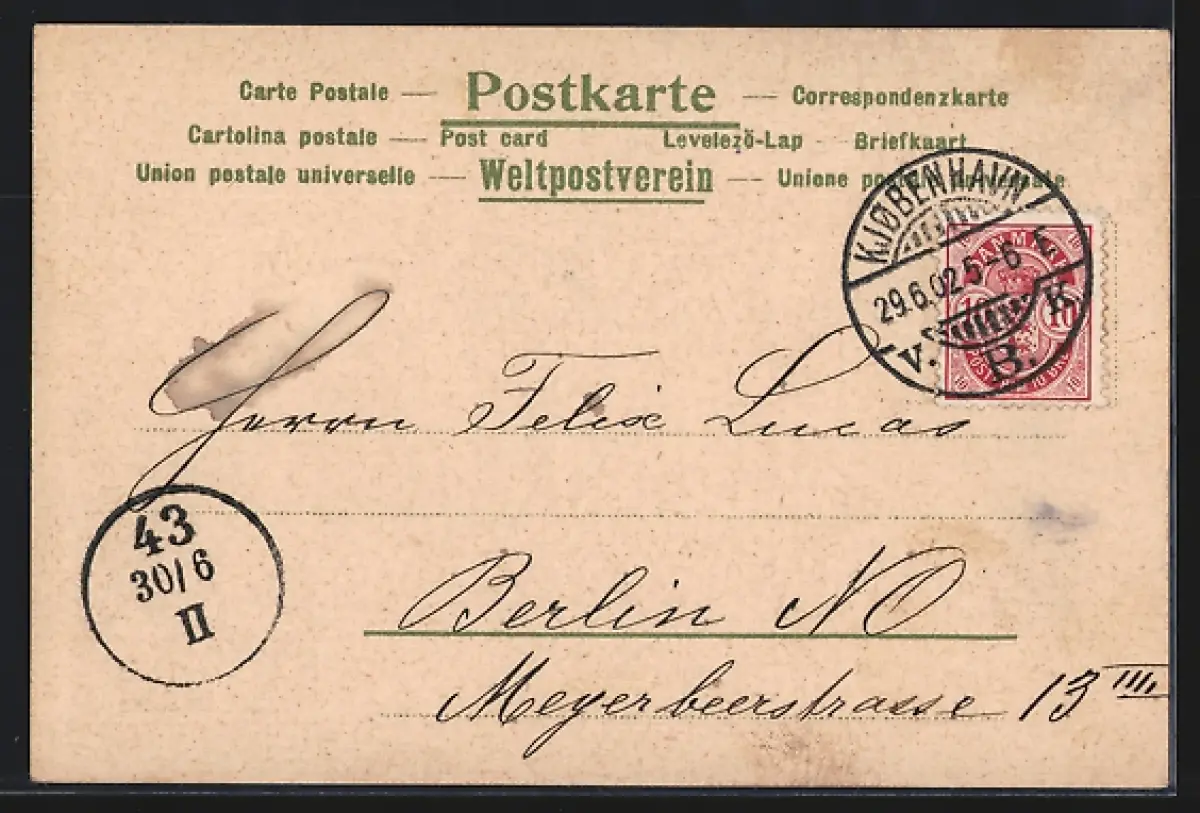 Carte Postale — Postkarte — Correspondenzkarte
Cartolina postale — Post card Levelező-Lap - Briefkaart
Union postale universelle — Weltpostverein — Unione postale universale
KJØBENHAVN
29.6.02 5-6 E.
V. B. K
DANMARK
10 10
POSTFRIM. 10 ØRE
Herrn Felix Lucas
43
30/6
II
Berlin NO
Meyerbeerstrasse 13 III